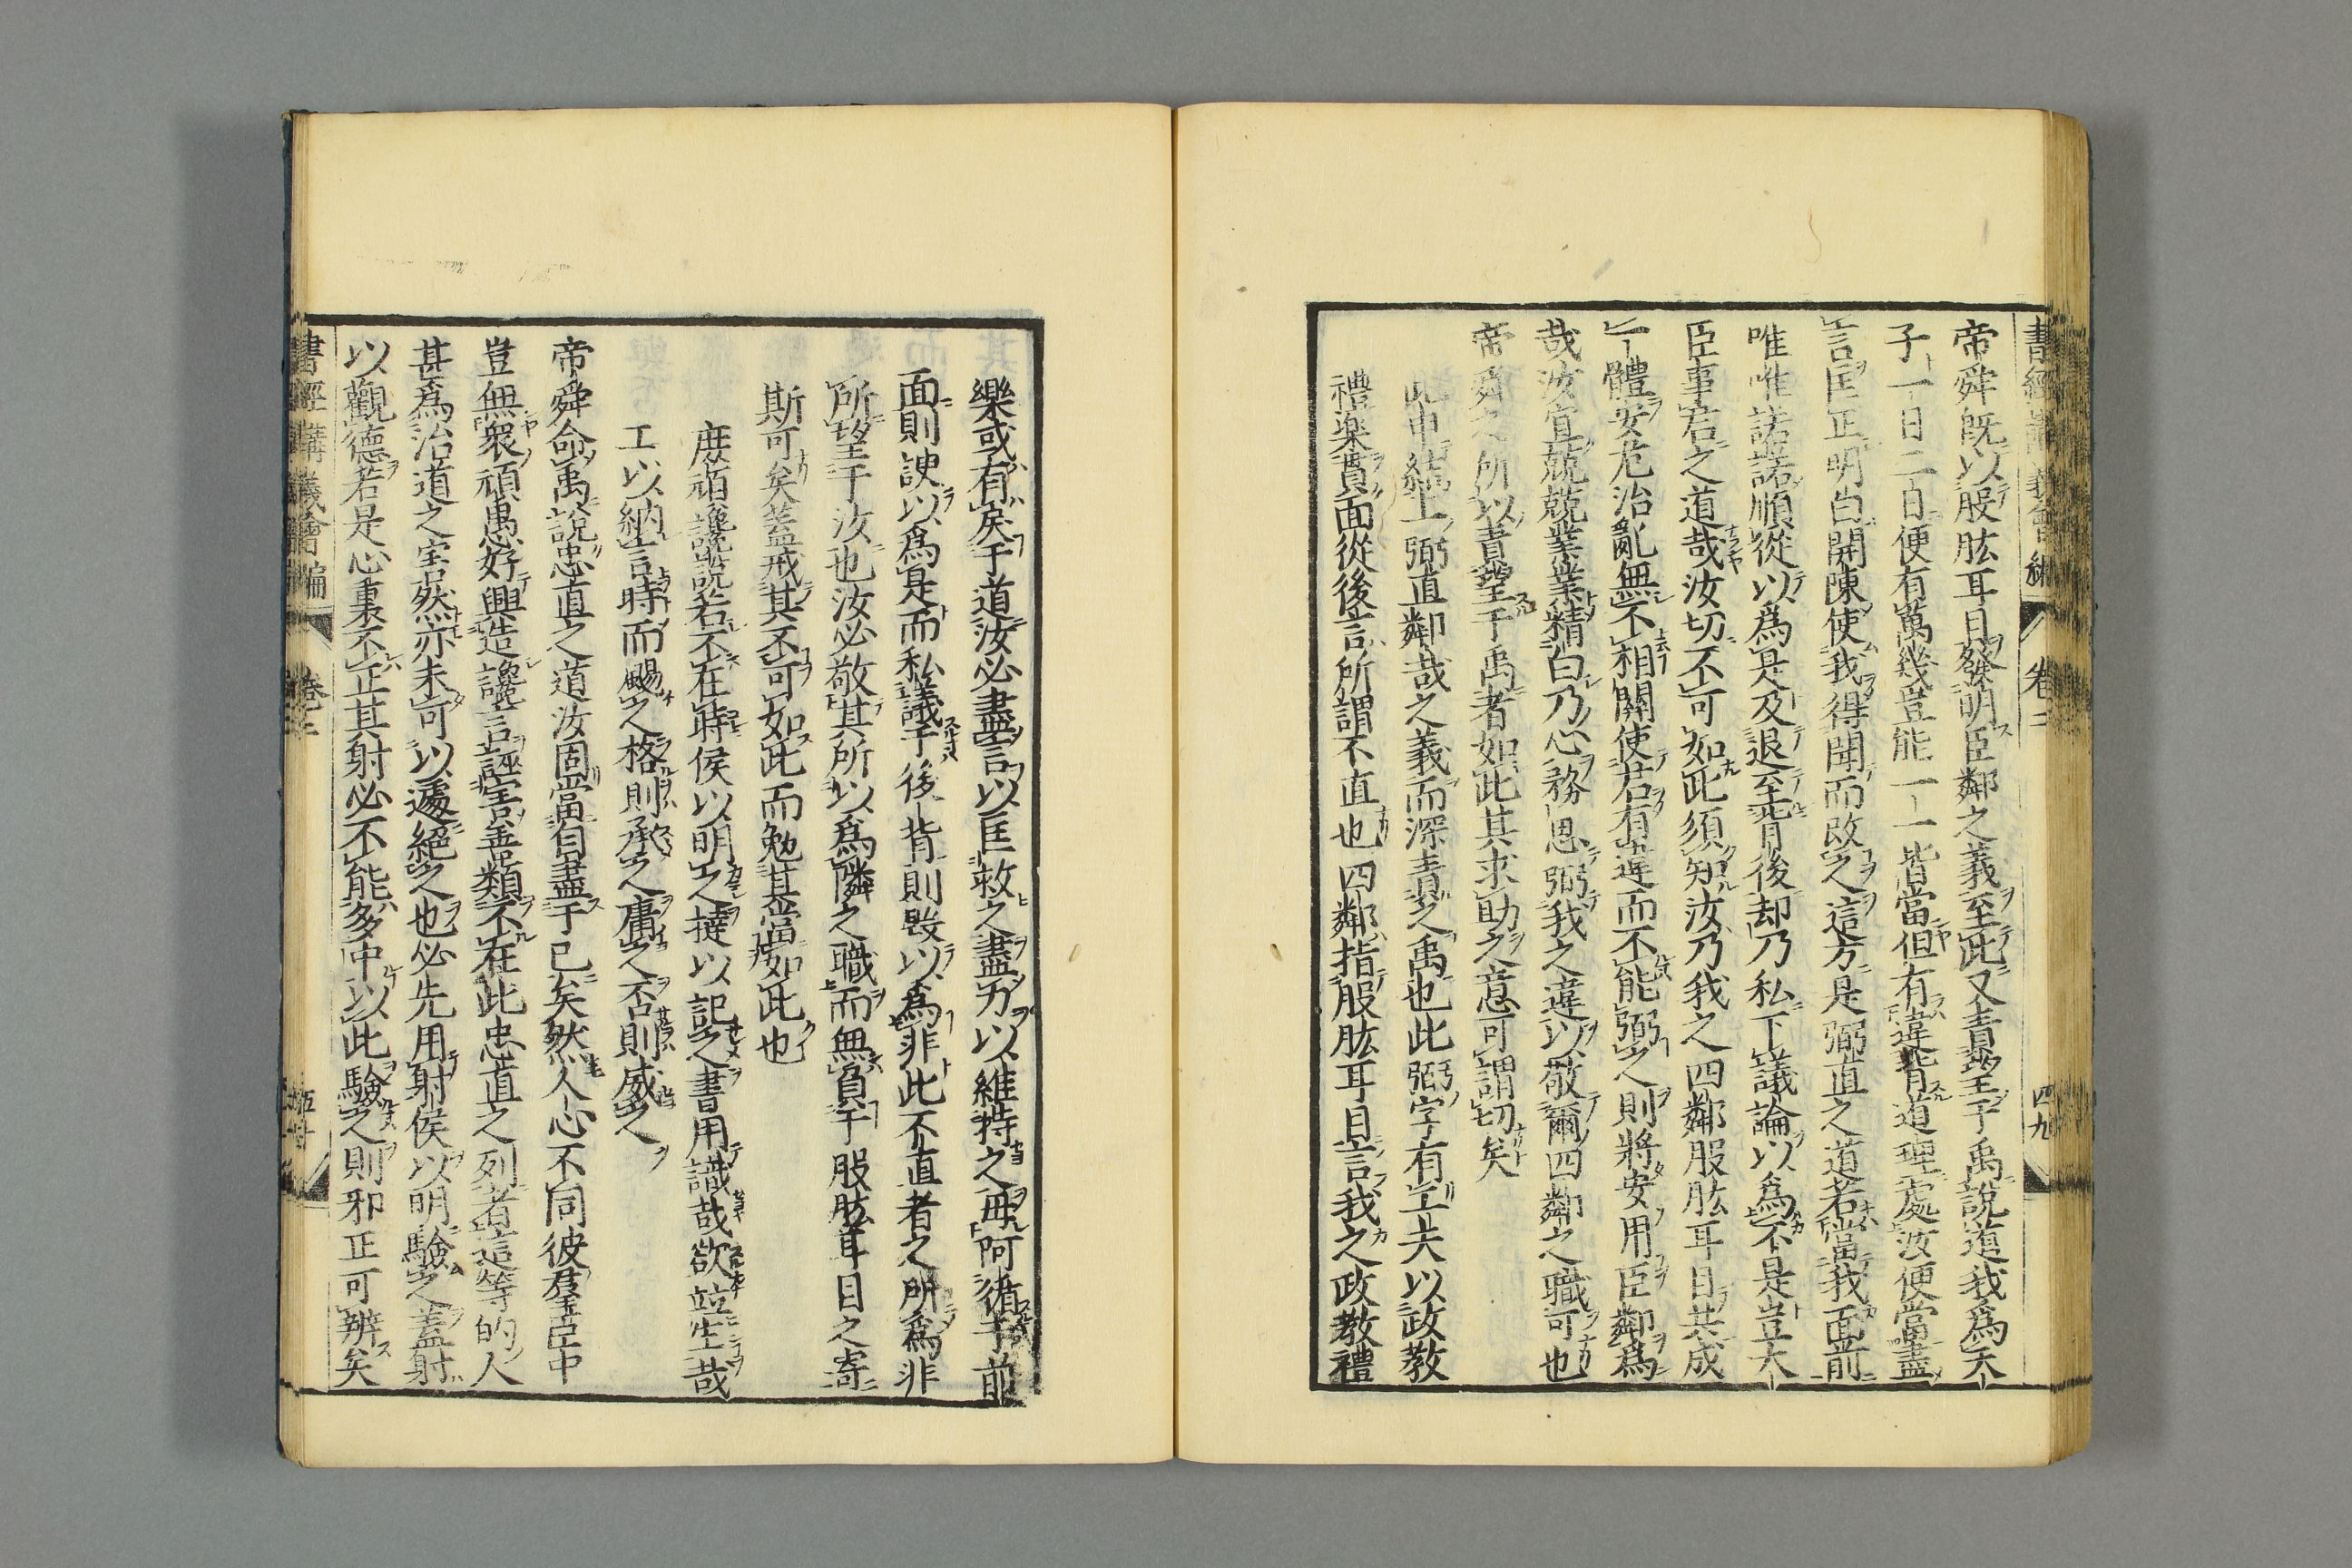 書經講義會編 卷二 四九
帝舜既以股肱耳目發明臣鄰之義至此又責望于禹說道我爲天
子一日二日便有萬幾豈能一一皆當但有違背道理處汝便當盡
言匡正明白開陳使我得聞而改之這方是弼直之道若當我面前
唯唯諾諾順從以爲是及退至背後却乃私下議論以爲不是豈大
臣事君之道哉汝切不可如此須知汝乃我之四鄰股肱耳目共成
一體安危治亂無不相關使君有違而不能弼之則將安用臣鄰爲
哉汝宜兢兢業業精白乃心務思弼我之違以敬爾四鄰之職可也
帝舜之所以責望于禹者如此其求助之意可謂切矣
此申結上弼直鄰哉之義而深責之禹也此弼字有工夫以政教
禮楽貫面從後言所謂不直也四鄰指股肱耳目言我之政教禮
樂或有戾于道汝必盡言以匡救之盡力以維持之毋阿循于前
面則諛以爲是而私議于後背則毀以爲非此不直者之所爲非
所望于汝也汝必敬其所以爲隣之職而無負于股肱耳目之寄
斯可矣蓋戒其不可如此而勉其當如此也
庶頑讒說若不在時侯以明之撻以記之書用識哉欲並生哉
工以納言時而颺之格則承之庸之否則威之
帝舜命禹說忠直之道汝固當自盡于已矣然人心不同彼羣臣中
豈無衆頑愚好興造讒言誣害善類不在此忠直之列者這等的人
甚爲治道之害然亦未可以遽絕之也必先用射侯以明驗之蓋射
以觀德若是心裏不正其射必不能多中以此驗之則邪正可辨矣
書經講義會編 卷二 五十